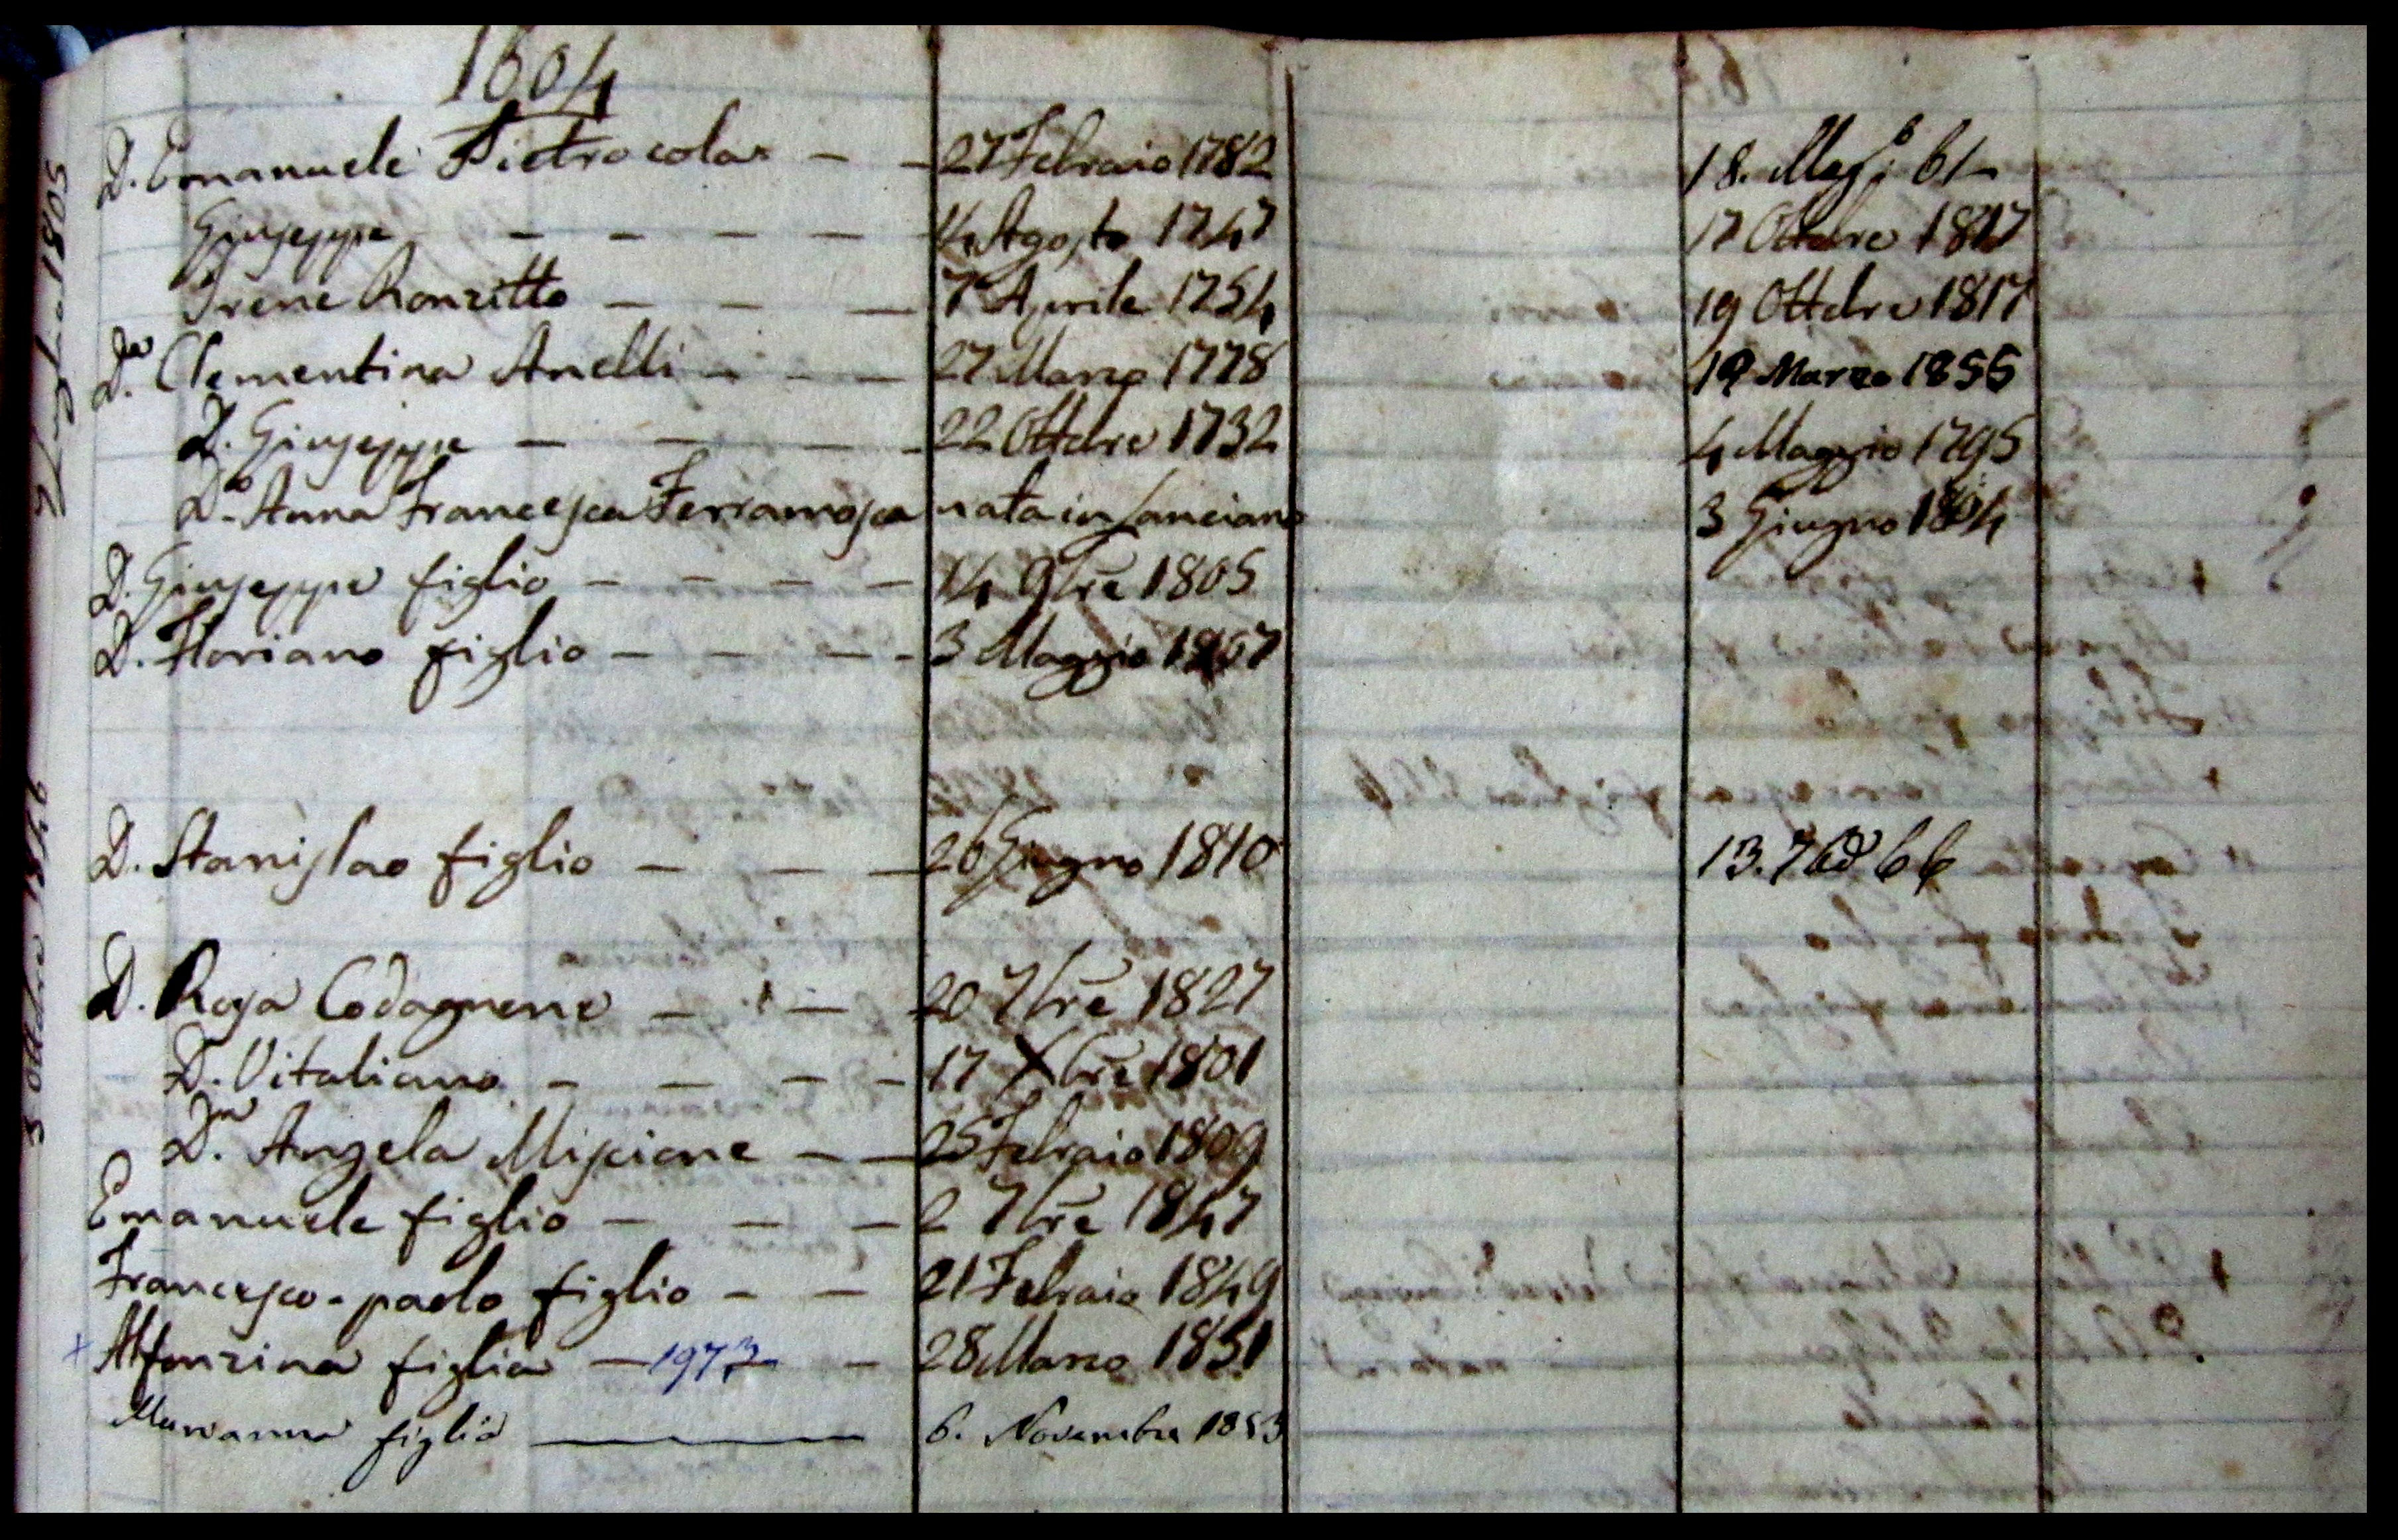 1604
D. Emanuele Pietrocola - - 27 Febraio 1782 18. Magg.º 61
Giuseppe - - - - - 14 Agosto 1747 17 Ottobre 1817
Irene Ronzitto - - - 7 Aprile 1754 19 Ottobre 1817
D.a Clementina Anelli - - - 27 Marzo 1778 19 Marzo 1855
D. Giuseppe - - - - 22 Ottobre 1732 4 Maggio 1795
D.a Anna Francesca Ferramosca nata in Lanciano 3 Giugno 1804
D. Giuseppe figlio - - - - 14 9bre 1805
D. Floriano figlio - - - - 3 Maggio 1807
D. Stanislao figlio - - - 26 Giugno 1810 13. 7bre 66
D. Rosa Codagnone - - - 20 7bre 1827
D. Vitaliano - - - - 17 Xbre 1801
D.a Angela Miscione - - 25 Febraio 1809
Emanuele figlio - - - 2 7bre 1847
Francesco-paolo figlio - - 21 Febraio 1849
x Alfonzina figlia - 1973 - 28 Marzo 1851
Marianna figlia 6. Novembre 1853
2 Luglio 1805
3 Ottobre 1846